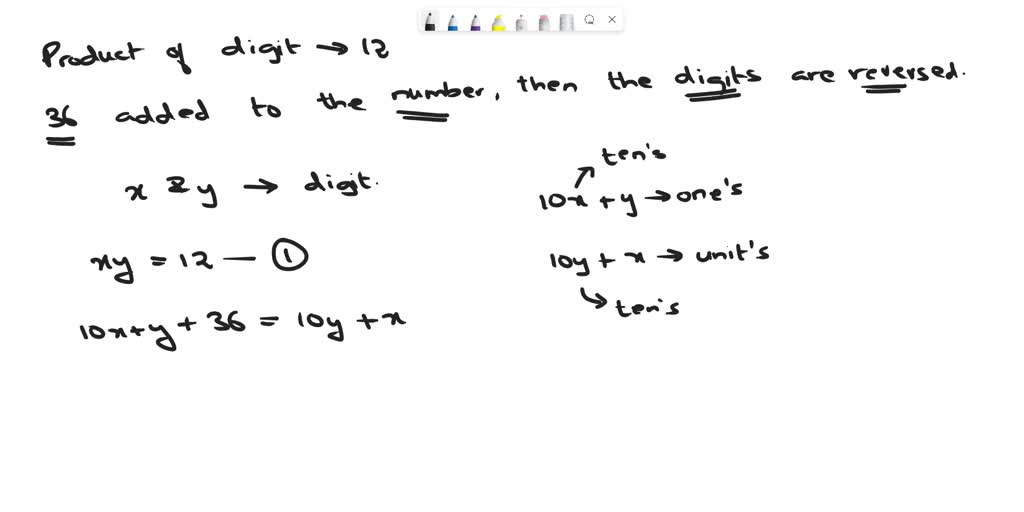 Product of digit → 12
36 added to the number, then the digits are reversed.
x & y → digit.
xy = 12 — ①
10x+y + 36 = 10y + x
ten's
10x + y → one's
10y + x → unit's
ten's